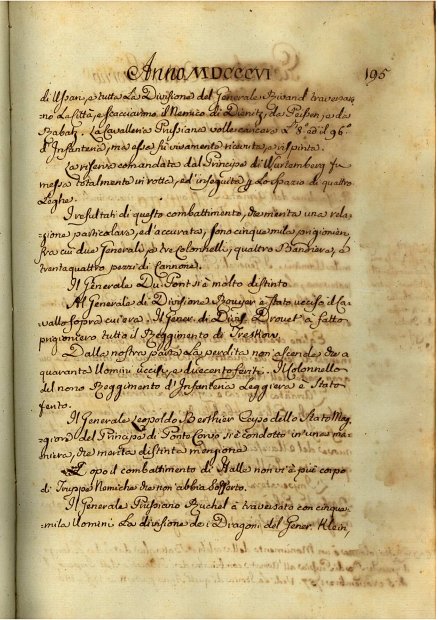 Anno MDCCCVI
195
di Ussari, e tutta La Divisione del Generale Rivaud traversar-
no La Città, e scacciarono il Nemico di Dienitz, da Peissen, e da
Rabatz. La Cavalleria Prussiana volle caricare L'8º ed il 96º
d'Infanteria, ma essa fù vivamente ricevuta, e respinta.
La riserva comandata dal Principe di Wurtemberg fu
messa totalmente in rotta, ed inseguita p Lo spazio di quattro
Leghe.
I resultati di questo combattimento, che merita una rela-
zione particolare, ed accurata, sono cinque mila prigionieri
fra cui due Generali, e tre Colonnelli, quattro Bandiere, e
trentaquattro pezzi di Cannone.
Il Generale Du Pont si è molto distinto.
Al Generale di Divisione Rouyer è stato ucciso il Ca-
vallo sopra cui era. Il Gener. di Divis. Drouet à fatto
prigioniero tutto il Reggimento di Treskow.
Dalla nostra parte La perdita non ascende che a
quaranta Uomini uccisi, e duecento feriti. Il Colonnello
del nono Reggimento d'Infanteria Leggiera è Stato
ferito.
Il Generale Leopoldo Berthier Capo dello Stato Mag-
giore del Principe di Ponto Corvo si è condotto in una ma-
niera, che merita distinta menzione
Dopo il combattimento di Halla non vi è più corpo
di Truppe Nemiche che non abbia sofferto.
Il Generale Prussiano Bluchel à traversato con cinque-
mila Uomini La divisione dei Dragoni del Gener. Klein,